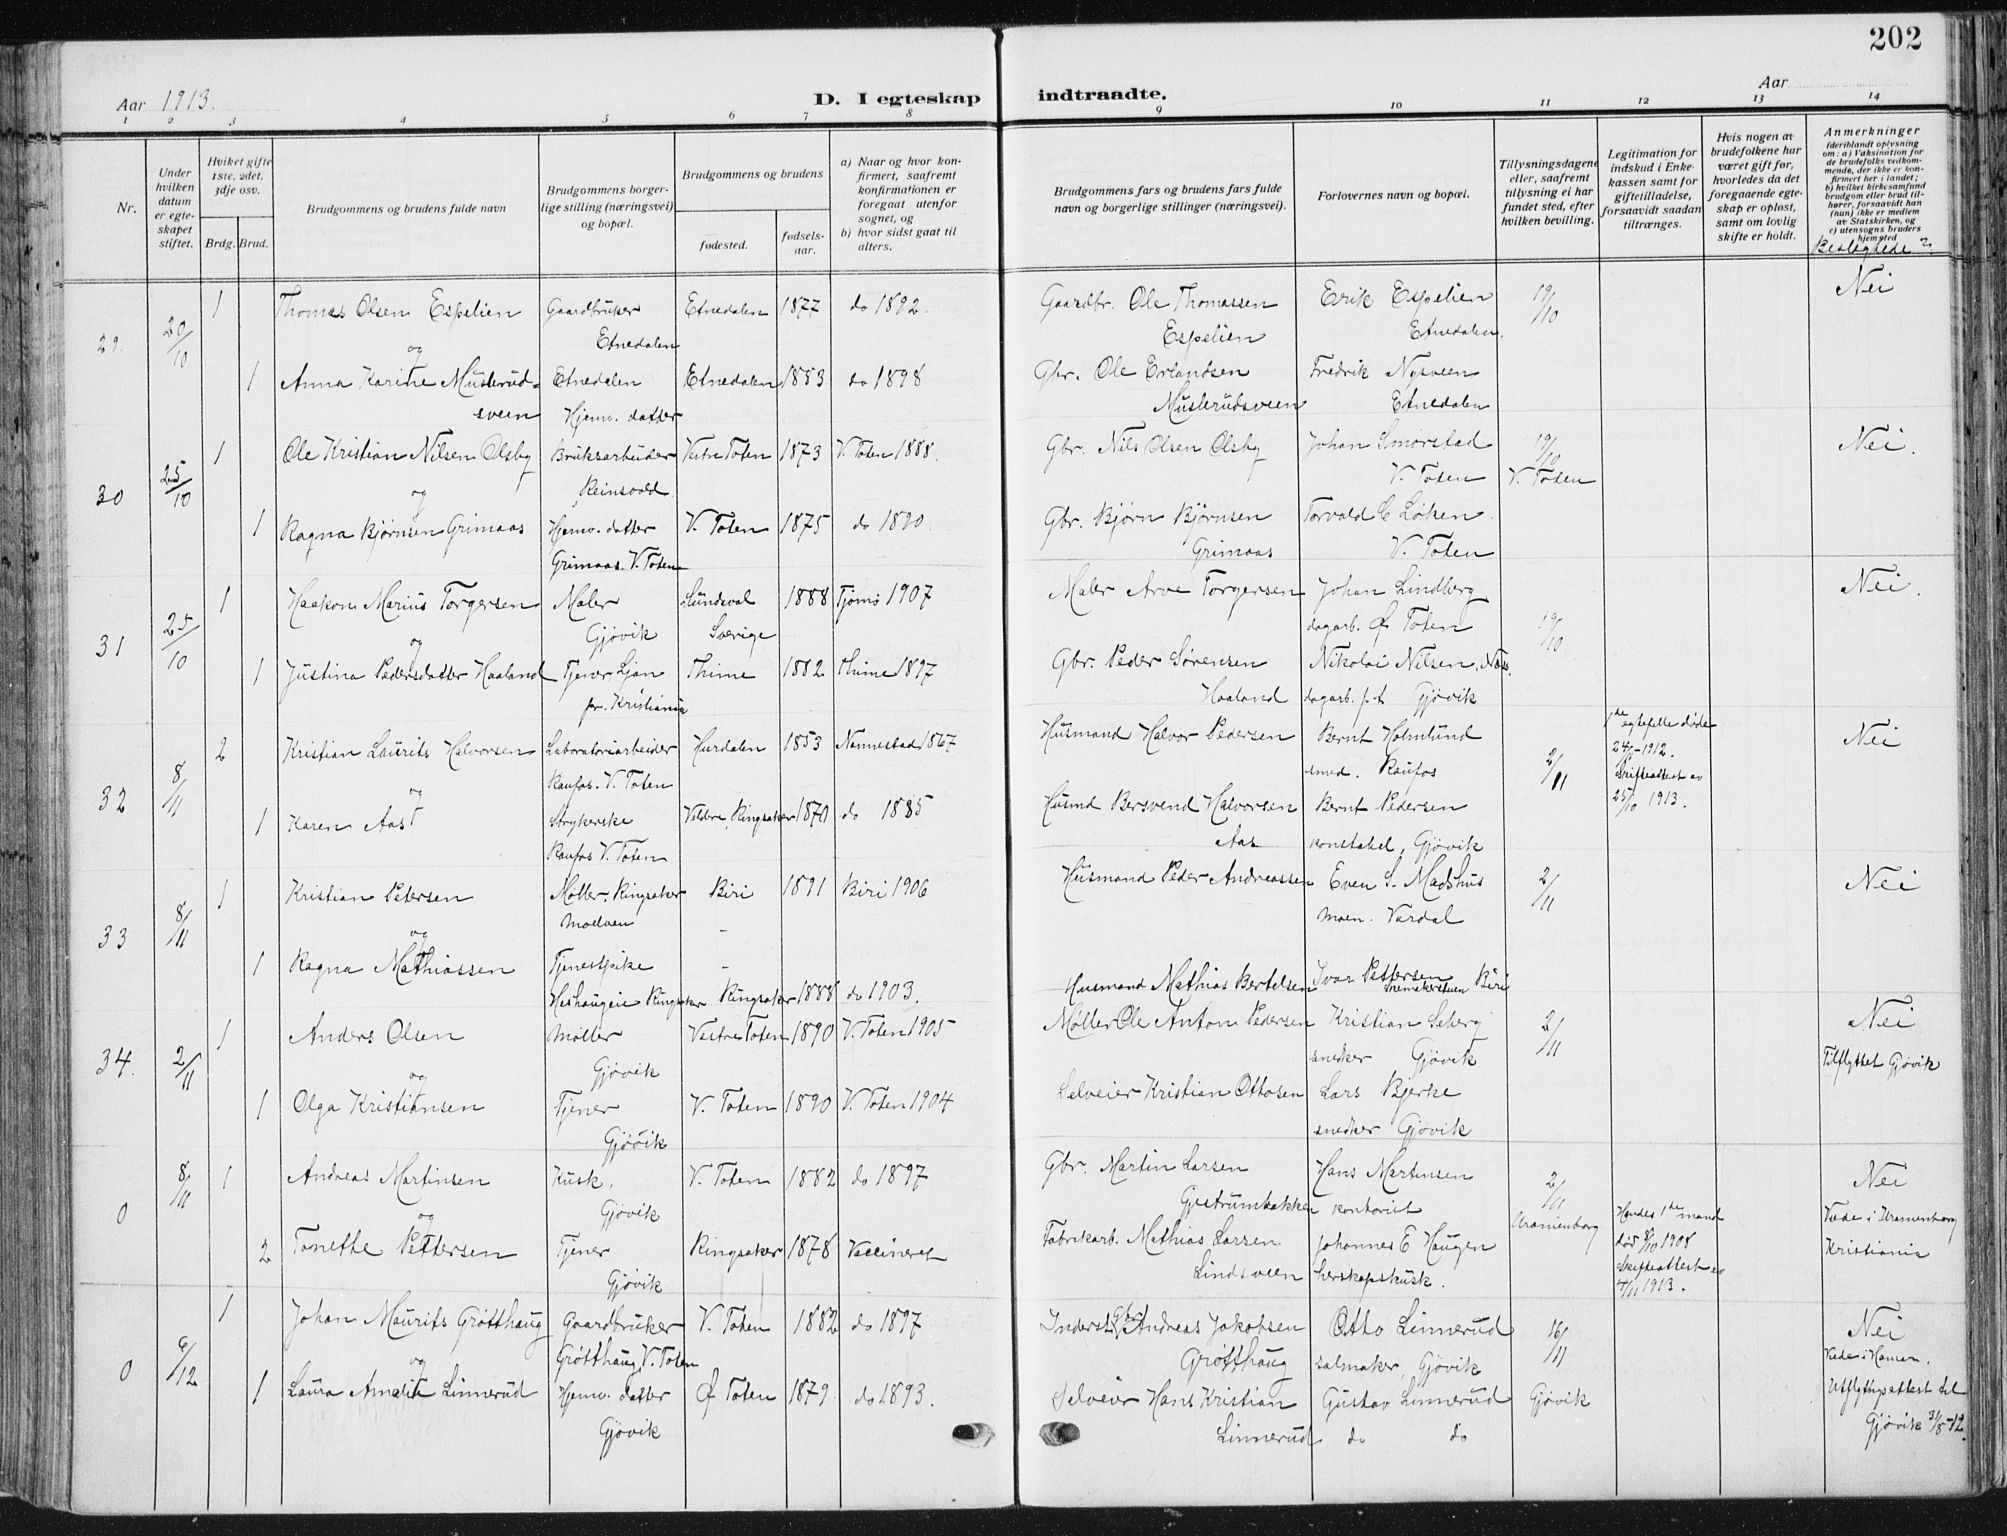 202
Aar 1913.
D. I egteskap indtraadte.
Aar
1 2 3 4 5 6 7 8 9 10 11 12 13 14
Nr.
Under hvilken datum er egteskapet stiftet.
Hviket gifte 1ste, 2det, 3dje osv.
Brdg. Brud.
Brudgommens og brudens fulde navn
Brudgommens borgerlige stilling (næringsvei) og bopæl.
Brudgommens og brudens
fødested.
fødselsaar.
a) Naar og hvor konfirmert, saafremt konfirmationen er foregaat utenfor sognet, og
b) hvor sidst gaat til alters.
Brudgommens fars og brudens fars fulde navn og borgerlige stillinger (næringsvei).
Forlovernes navn og bopæl.
Tillysningsdagene eller, saafremt tillysning ei har fundet sted, efter hvilken bevilling.
Legitimation for indskud i Enkekassen samt for giftetilladelse, forsaavidt saadan tiltrænges.
Hvis nogen av brudefolkene har været gift før, hvorledes da det foregaaende egteskap er opløst, samt om lovlig skifte er holdt.
Anmerkninger (deriblandt oplysning om: a) Vaksination for de brudefolks vedkommende, der ikke er konfirmert her i landet; b) hvilket kirkesamfund brudgom eller brud tilhører, forsaavidt han (hun) ikke er medlem av Statskirken, og c) utensogns bruders hjemsted
Beslegtede?
29. 20/10 1 Thomas Olsen Espelien Gaardbruker Etnedalen Etnedalen 1877 do 1892. Gaardbr. Ole Thomassen Espelien Erik Espelien Etnedalen. 19/10 Nei
og
1 Anna Karine Muslerudsveen Etnedalen Hjemv. datter Etnedalen 1883 do 1898 Gbr. Ole Erlandsen Muslerudsveen Fredrik Nysveen Etnedalen
30 25/10 1 Ole Kristian Nilsen Olsby Bruksarbeider Reinsvold Vestre Toten 1873 V. Toten 1888. Gbr. Nils Olsen Olsby Johan Smørstad V. Toten 19/10 V. Toten Nei.
og
1 Ragna Bjørnsen Grimaas Hjemv. datter Grimaas. V. Toten V. Toten 1875 do 1890. Gbr. Bjørn Bjørnsen Grimaas Torvald C Løken V. Toten
31 25/10 1 Haakon Marius Torgersen Maler Gjövik Sundsval Sverige 1888 Tjømø 1907 Maler Arve Torgersen Johan Lindberg dagarb. Ø Toten 19/10 Nei.
og
1 Justina Pedersdatter Haaland Tjener Ljan pr. Kristiania Thime 1882 Thime 1897 Gbr. Peder Sørensen Haaland Nikolai Nilsen, Næs. dagarb. p.t. Gjövik
32 8/11 2 Kristian Laurits Halvorsen Laboratoriarbeider Raufos. V. Toten Hurdalen 1853 Nannestad 1867 Husmand Halvor Pedersen Bernt Holmlund smed. Raufos 2/11 1de egtefelle døde 24/1-1912. Skifteattest av 25/10 1913. Nei
og
1 Karen Aas Strykerske Raufos V. Toten Veldre, Ringsaker 1870 do 1885 Husmd Bersvend Halvorsen Aas Bernt Pedersen konstabel, Gjövik
33 8/11 1 Kristian Petersen Møller. Ringsaker Moelven Biri 1891 Biri 1906 Husmand Peder Andreassen Even S. Madshus Moen. Vardal 2/11 Nei
og
1 Ragna Mathiassen Tjenestpike Ringsaker Ringsaker 1888 do 1903. Husmand Mathias Bertelsen Ivar Pettersen Biri
34. 2/11 1 Anders Olsen Møller Gjövik Vestre Toten 1890 V. Toten 1905 Møller Ole Anton Pedersen Kristian Seberg snedker Gjövik 2/11 Nei Tilflyttet Gjövik
og
1 Olga Kristiansen Tjener Gjövik V. Toten 1890 V. Toten 1904 Selveier Kristian Ottosen Lars Bjerke snedker Gjövik
0 8/11 1 Andreas Martinsen Kusk. Gjövik V. Toten 1882 do 1897 Gbr. Martin Larsen Gjestrumbakken Hans Martinsen kontorist 2/11 Uranienborg Nei
og
2 Tonette Pettersen Tjener Gjövik Ringsaker 1878 Vaccineret Fabrikarb. Mathias Larsen Lindsveen Johannes E Haugen herskapskusk. Hendes 1de mand død 8/10 1908 Skifteattest av 4/11 1913. Viede i Uranienborg Kristiania
0 6/12 1 Johan Maurits Grøtthaug Gaardbruker Grøtthaug, V. Toten V. Toten 1882 do 1897 Inderst Gbr. Andreas Jakobsen Grøtthaug Otto Linnerud salmaker, Gjövik 16/11 Nei Viede i Hamar.
og
1 Laura Amalie Linnerud Hjemv. datter Gjövik Ø Toten 1879. do 1893. Selveier Hans Kristian Linnerud Gustav Linnerud do do Gjövik Utflytngsattest til Gjövik 31/8-12.